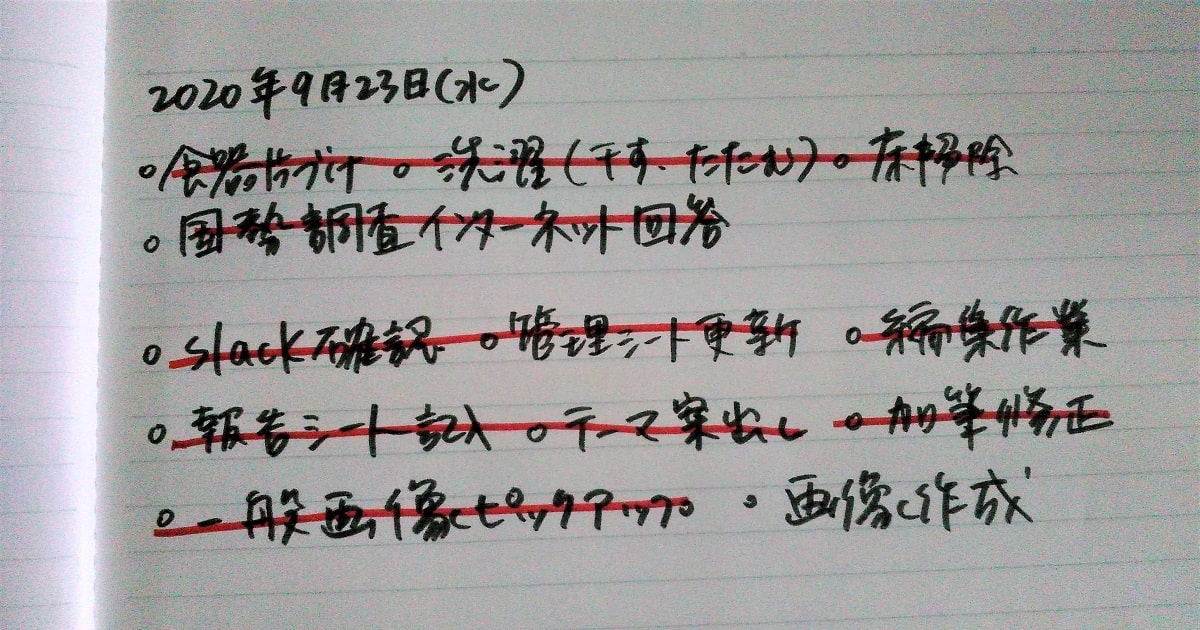 2020年9月23日(水)
○食器片づけ ○洗濯(干す、たたむ) ○床掃除
○国勢調査インターネット回答
○slack確認 ○管理シート更新 ○編集作業
○報告シート記入 ○テーマ案出し ○加筆修正
○一般画像ピックアップ ○画像作成